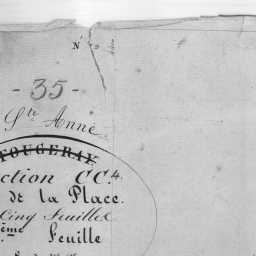 N
- 35 -
Ste Anne
FOUGERAY
ction CC4.
de la Place.
Cinq Feuilles
ème Feuille